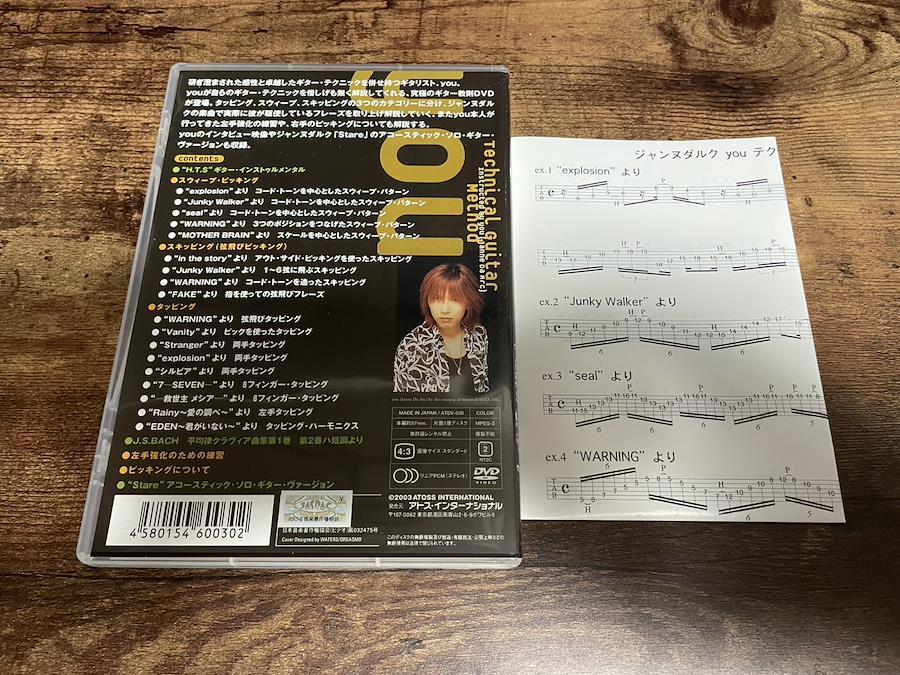 研ぎ澄まされた感性と卓越したギター・テクニックを併せ持つギタリスト、you。
youが自らのギター・テクニックを惜しげも無く解説してくれる、究極のギター教則DVD
が登場。タッピング、スウィープ、スキッピングの3つのカテゴリーに分け、ジャンヌダル
クの楽曲で実際に彼が駆使しているフレーズを取り上げ解説していく。またyou本人が
行ってきた左手強化の練習や、右手のピッキングについても解説する。
youのインタビュー映像やジャンヌダルク「Stare」のアコースティック・ソロ・ギター・
ヴァージョンも収録。
contents
●"H.T.S"ギター・インストゥルメンタル
●スウィープ・ピッキング
●"explosion"より コード・トーンを中心としたスウィープ・パターン
●"Junky Walker"より コード・トーンを中心としたスウィープ・パターン
●"seal"より コード・トーンを中心としたスウィープ・パターン
●"WARNING"より 3つのポジションをつなげたスウィープ・パターン
●"MOTHER BRAIN"より スケールを中心としたスウィープ・パターン
●スキッピング(弦飛びピッキング)
●"In the story"より アウト・サイド・ピッキングを使ったスキッピング
●"Junky Walker"より 1〜6弦に飛ぶスキッピング
●"WARNING"より コード・トーンを追ったスキッピング
●"FAKE"より 指を使っての弦飛びフレーズ
●タッピング
●"WARNING"より 弦飛びタッピング
●"Vanity"より ピックを使ったタッピング
●"Stranger"より 両手タッピング
●"explosion"より 両手タッピング
●"シルビア"より 両手タッピング
●"7―SEVEN―"より 8フィンガー・タッピング
●"―救世主 メシア―"より 8フィンガー・タッピング
●"Rainy〜愛の調べ〜"より 左手タッピング
●"EDEN〜君がいない〜"より タッピング・ハーモニクス
●J.S.BACH 平均律クラヴィア曲集第1巻 第2番ハ短調より
●左手強化のための練習
●ピッキングについて
●"Stare"アコースティック・ソロ・ギター・ヴァージョン
YOU
Technical Guitar
Method
Instructed by you (Janne Da Arc)
you (Janne Da Arc) by the courtesy of motorod/AVEX INC.
MADE IN JAPAN / ATDV-030
COLOR
本編約57分
片面1層ディスク
MPEG-2
無許諾レンタル禁止
複製不能
4:3
画像サイズ スタンダード
2
NTSC
リニアPCM(ステレオ)
DVD
VIDEO
©2003 ATOSS INTERNATIONAL
発売元 アトス・インターナショナル
〒107-0062 東京都港区南青山2-6-9ボワビル8
このディスクの無断複製及び放送・有線放送・公開上映などの
無断使用は法律で禁じられています。
4580154600302
JASRAC
日本音楽著作権協会
日本音楽著作権協会(ビデオ)第032475号
Cover Designed by WATERS/ORGASMO
ジャンヌダルク you テク
ex.1 "explosion" より
ex.2 "Junky Walker" より
ex.3 "seal" より
ex.4 "WARNING" より